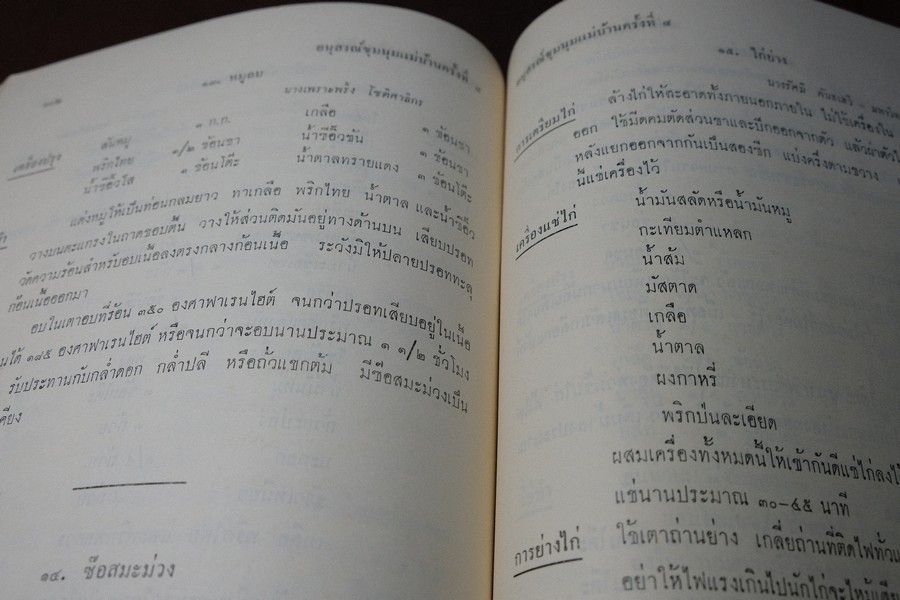 ๑๐๒
อนุสรณ์ชุมนุมแม่บ้านครั้งที่ ๔
๑๓. หมูอบ
นางเพราะพริ้ง โชติศาลิกร
เครื่องปรุง สันหมู ๑ ก.ก. เกลือ ๑ ช้อนชา
พริกไทย ๑/๒ ช้อนชา น้ำซีอิ๊วขัน ๑ ช้อนชา
น้ำซีอิ๊วใส ๑ ช้อนโต๊ะ น้ำตาลทรายแดง ๓ ช้อนโต๊ะ
แต่งหมูให้เป็นท่อนกลมยาว ทาเกลือ พริกไทย น้ำตาล และน้ำซีอิ๊ว
วางบนตะแกรงในถาดขอบตื้น วางให้ส่วนติดมันอยู่ทางด้านบน เสียบปรอท
วัดความร้อนสำหรับอบเนื้อลงตรงกลางก้อนเนื้อ ระวังมิให้ปลายปรอททะลุ
ก้อนเนื้อออกมา
อบในเตาอบที่ร้อน ๓๕๐ องศาฟาเรนไฮต์ จนกว่าปรอทเสียบอยู่ในเนื้อ
ได้ ๑๘๕ องศาฟาเรนไฮต์ หรือจนกว่าจะอบนานประมาณ ๑ ๑/๒ ชั่วโมง
รับประทานกับกล่ำดอก กล่ำปลี หรือถั่วแขกต้ม มีซ๊อสมะม่วงเป็น
เคียง
๑๔. ซ๊อสมะม่วง
อนุสรณ์ชุมนุมแม่บ้านครั้งที่ ๔
๑๕. ไก่ย่าง
นางรัศมี
การเตรียมไก่ ล้างไก่ให้สะอาดทั้งภายนอกภายใน ไม่ใช้เครื่องใน
ออก ใช้มีดคมตัดส่วนขาและปีกออกจากตัว แล้วผ่าตัวไก่
หลังแยกออกจากกันเป็นสองซีก แบ่งครึ่งตามขวาง
นี้แช่เครื่องไว้
เครื่องแช่ไก่ น้ำมันสลัดหรือน้ำมันหมู
กะเทียมตำแหลก
น้ำส้ม
มัสตาด
เกลือ
น้ำตาล
ผงกาหรี่
พริกป่นละเอียด
ผสมเครื่องทั้งหมดนี้ให้เข้ากันดีแช่ไก่ลงไว้
แช่นานประมาณ ๓๐–๔๕ นาที
การย่างไก่ ใช้เตาถ่านย่าง เกลี่ยถ่านที่ติดไฟทั่วแล้ว
อย่าให้ไฟแรงเกินไปนักไก่จะไหม้เสีย